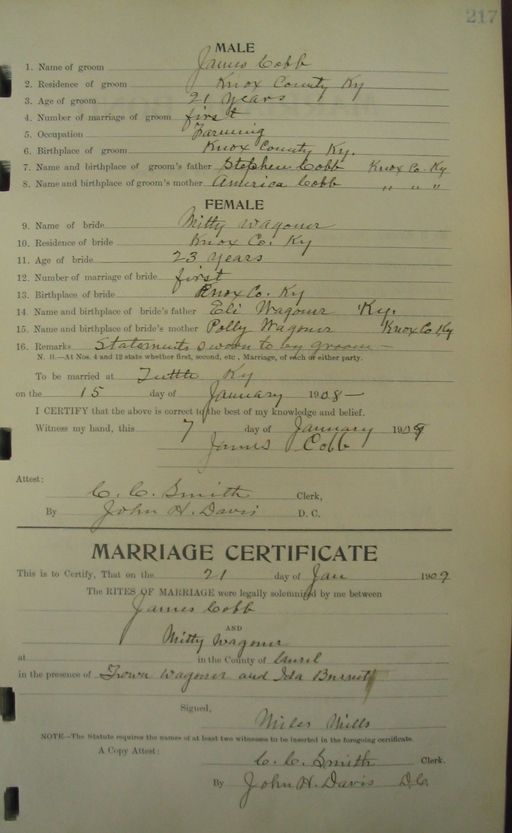 217
MALE
1. Name of groom James Cobb
2. Residence of groom Knox County Ky
3. Age of groom 21 years
4. Number of marriage of groom first
5. Occupation Farming
6. Birthplace of groom Knox County Ky.
7. Name and birthplace of groom's father Stephen Cobb Knox Co. Ky
8. Name and birthplace of groom's mother America Cobb " " "
FEMALE
9. Name of bride Mitty Wagoner
10. Residence of bride Knox Co. Ky
11. Age of bride 23 years
12. Number of marriage of bride first
13. Birthplace of bride Knox Co. Ky
14. Name and birthplace of bride's father Eli Wagoner Ky.
15. Name and birthplace of bride's mother Polly Wagoner Knox Co Ky
16. Remarks Statements sworn to by groom -
N. B.—At Nos. 4 and 12 state whether first, second, etc., Marriage, of each or either party.
To be married at Tuttle Ky
on the 15 day of January 1908 -
I CERTIFY that the above is correct to the best of my knowledge and belief.
Witness my hand, this 7 day of January 1909
James Cobb
Attest:
C. C. Smith Clerk,
By John H. Davis D. C.
MARRIAGE CERTIFICATE
This is to Certify, That on the 21 day of Jan 1909
The RITES OF MARRIAGE were legally solemnized by me between
James Cobb
AND
Mitty Wagoner
at in the County of Laurel
in the presence of Wagoner and Ida
Signed,
Miles Mills
NOTE—The Statute requires the names of at least two witnesses to be inserted in the foregoing certificate.
A Copy Attest:
C. C. Smith Clerk.
By John H. Davis D.C.